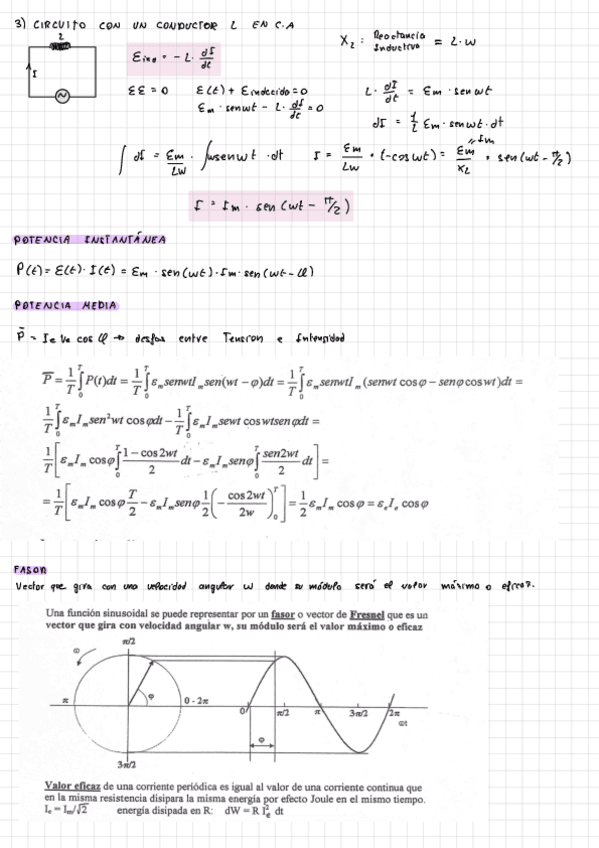 3) CIRCUITO CON UN CONDUCTOR L EN C.A
L
I
Eind = - L · dI/dt
X_L : Reactancia Inductiva = L · w
ΣE = 0    E(t) + Einducido = 0
Em · senwt - L · dI/dt = 0
L · dI/dt = Em · senwt
dI = 1/L Em · senwt · dt
∫ dI = Em/Lw · ∫ wsenwt · dt    I = Em/Lw · (-coswt) = Em/X_L · sen(wt - π/2)
= Im
I = Im · sen (wt - π/2)
POTENCIA INSTANTÁNEA
P(t) = E(t) · I(t) = Em · sen(wt) · Im · sen(wt - φ)
POTENCIA MEDIA
P̄ = Ie Ve cos φ → desfas entre Tension e Intensidad
P̄ = 1/T ∫₀ᵀ P(t)dt = 1/T ∫₀ᵀ εₘsenwtIₘsen(wt − φ)dt = 1/T ∫₀ᵀ εₘsenwtIₘ(senwt cosφ − senφcoswt)dt =
1/T ∫₀ᵀ εₘIₘsen²wt cosφdt − 1/T ∫₀ᵀ εₘIₘsewt coswtsenφdt =
1/T [εₘIₘ cosφ ∫₀ᵀ (1 − cos2wt)/2 dt − εₘIₘsenφ ∫₀ᵀ sen2wt/2 dt] =
= 1/T [εₘIₘ cosφ T/2 − εₘIₘsenφ 1/2 (− cos2wt/2w)₀ᵀ] = 1/2 εₘIₘ cosφ = εₑIₑ cosφ
FASOR
Vector que gira con una velocidad angular w donde su módulo será el valor máximo o eficaz.
Una función sinusoidal se puede representar por un fasor o vector de Fresnel que es un
vector que gira con velocidad angular w, su módulo será el valor máximo o eficaz
π/2
ω
φ
π
0 - 2π
0
π/2
π
3π/2
2π
ωt
φ
3π/2
Valor eficaz de una corriente periódica es igual al valor de una corriente continua que
en la misma resistencia disipara la misma energía por efecto Joule en el mismo tiempo.
Iₑ = Iₘ/√2    energía disipada en R:    dW = R Iₑ² dt